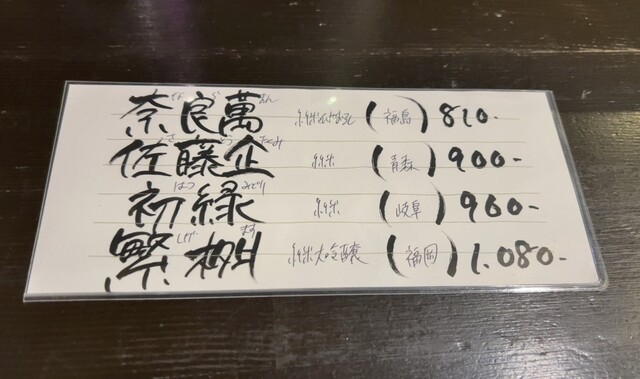 な ら まん
奈良萬 純米 (福島) 810-
さ とう たくみ
佐藤企 純米 (青森) 900-
はつ みどり
初緑 純米 (岐阜) 960-
しげ ます
繁桝 純米大吟醸 (福岡) 1.080-